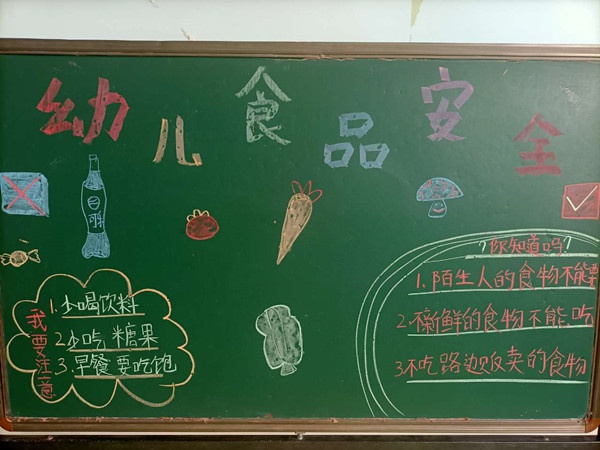 幼儿食品安全
我要注意
1.少喝饮料
2.少吃糖果
3.早餐要吃饱
?你知道吗?
1.陌生人的食物不能要
2.不新鲜的食物不能吃
3.不吃路边贩卖的食物